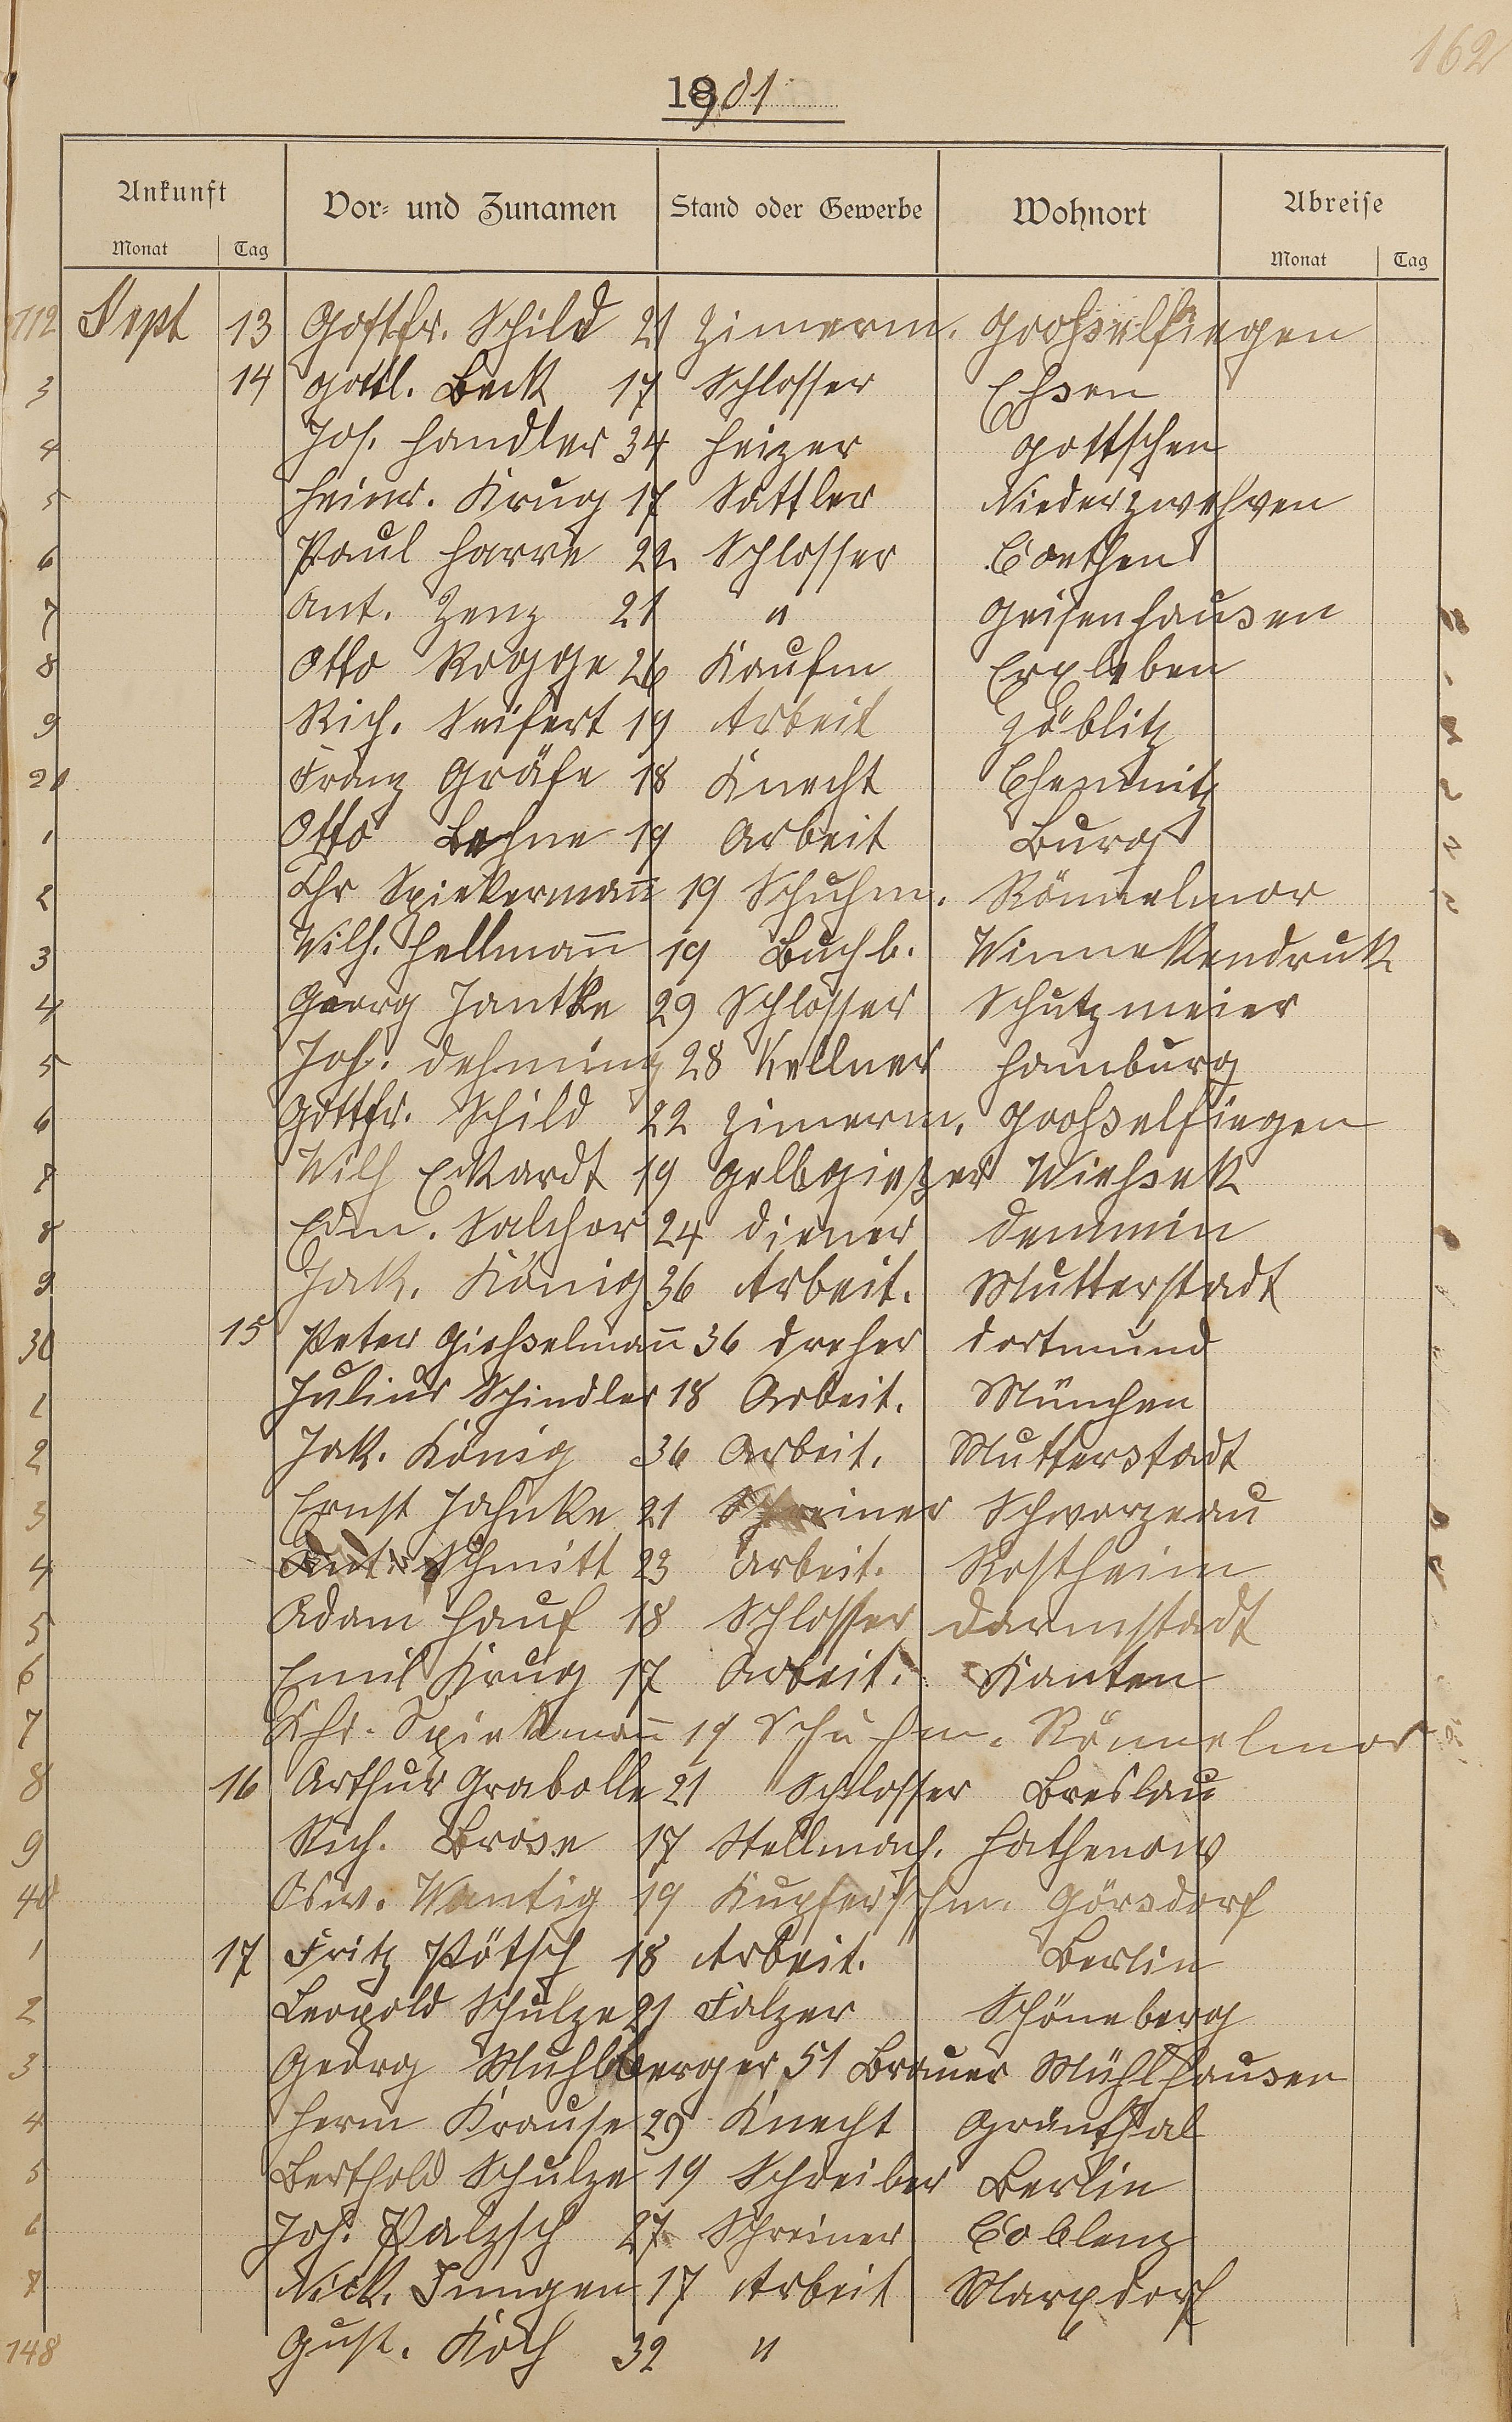 162
1901
Ankunft Vor- und Zunamen Stand oder Gewerbe Wohnort Abreise
Monat Tag Monat Tag
112 Sept 13 Gottfr. Schild 21 Zimerm. Großselfingen
3 14 Gottl. Beck 17 Schlosser Essen
4 Jos. Handler 34 Heizer Gottschen
5 Heinr. Krug 17 Sattler Niederzwehren
6 Paul Harre 22 Schlosser Coethen
7 Ant. Zenz 21 " Geisenhausen
8 Otto Rogge 26 Kaufm Erxleben
9 Rich. Seifert 19 Arbeit Zöblitz
20 Franz Gräfe 18 Knecht Chemnitz
1 Otto Lehne 19 Arbeit Burg
2 Chr Spiekermann̄ 19 Schuhm. Rönnelmor
3 Wilh. Hellman̄ 19 Buchb. Winnekendruk
4 Georg Jantke 29 Schlosser Schutzmeier
5 Joh. Dehming 28 Kellner Hamburg
6 Gottfr. Schild 22 Zimerm. Großselfingen
7 Wilh Eckardt 19 Gelbgießer Wießek
8 Edm. Salchor 24 Diener Demmin
9 Jak. König 36 Arbeit. Mutterstadt
30 15 Peter Gießelman̄ 36 Dreher Dortmund
1 Julius Schindler 18 Arbeit. München
2 Jak. König 36 Arbeit. Mutterstadt
3 Ernst Jahnke 21 Schreiner Schwarzeau
4 Schmitt 23 Arbeit. Kostheim
5 Adam Hauf 18 Schlosser Darmstadt
6 Emil Krug 17 Arbeit. Xanten
7 Chr. Spiekman̄ 19 Schuhm. Rönnelmor
8 16 Arthur Grabolle 21 Schlosser Breslau
9 Rich. Brose 17 Stellmach. Rathenow
40 Osw. Wantig 19 Kupferschm. Görsdorf
1 17 Fritz Pötsch 18 Arbeit. Berlin
2 Leopold Schulze 21 Falzer Schöneberg
3 Georg Muhlberger 51 Brauer Mühlhausen
4 Herm Krause 29 Knecht Grünthal
5 Berthold Schulze 19 Schreiber Berlin
6 Joh. Palzsch 27 Schreiner Coblenz
7 Nick. Jungen 17 Arbeit Marxdorf
148 Gust. Koch 32 "